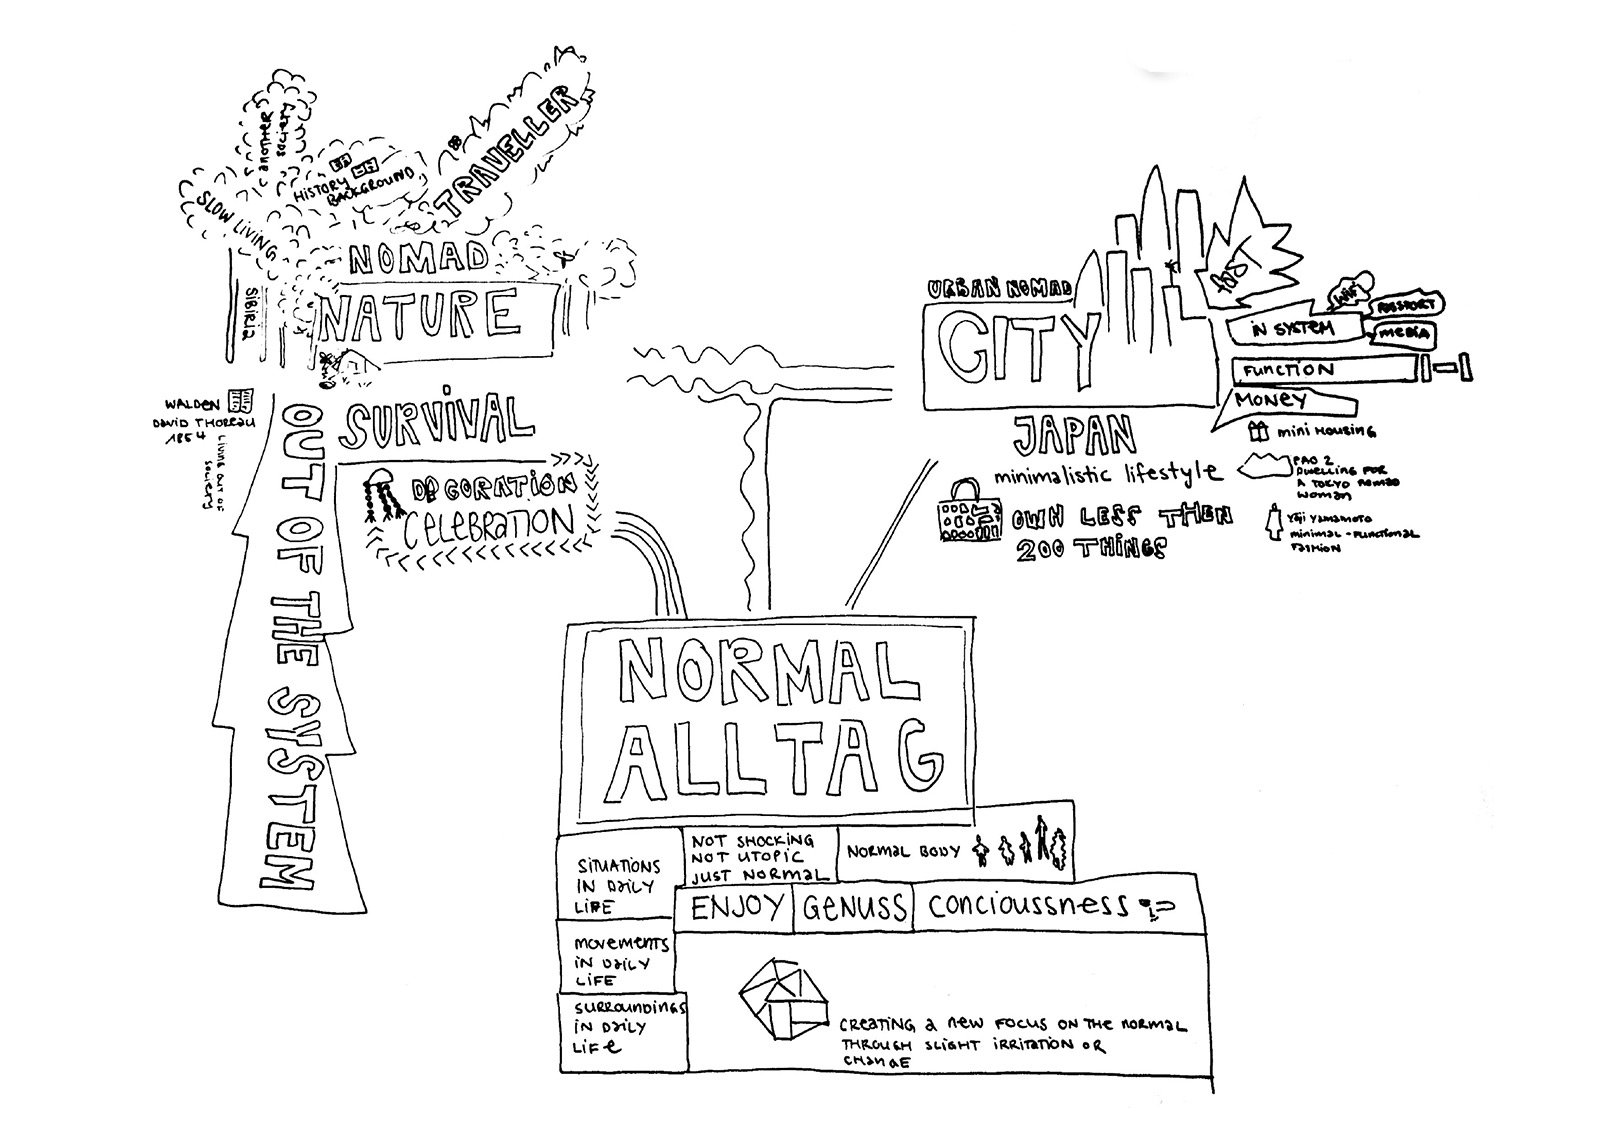 ANOTHER
SOCIETY
SLOW LIVING
HISTORY
BACKGROUND
TRAVELLER
NOMAD
NATURE
SIBIRIA
WALDEN
DAVID THOREAU
1854
LIVING OUT OF
SOCIETY
OUT OF THE SYSTEM
SURVIVAL
DECORATION
CELEBRATION
URBAN NOMAD
CITY
FAST
IN SYSTEM
WIFI
PASSPORT
MEDIA
FUNCTION
MONEY
JAPAN
minimalistic lifestyle
OWN LESS THEN
200 THINGS
mini HOUSING
PAO 2
DWELLING FOR
A TOKYO NOMAD
WOMAN
YOJI YAMAMOTO
minimal - FUNCTIONAL
FASHION
NORMAL
ALLTAG
SITUATIONS
IN DAILY
LIFE
NOT SHOCKING
NOT UTOPIC
JUST NORMAL
NORMAL BODY
ENJOY
GENUSS
CONCIOUSSNESS
MOVEMENTS
IN DAILY
LIFE
SURROUNDINGS
IN DAILY
LIFE
CREATING A NEW FOCUS ON THE NORMAL
THROUGH SLIGHT IRRITATION OR
CHANGE